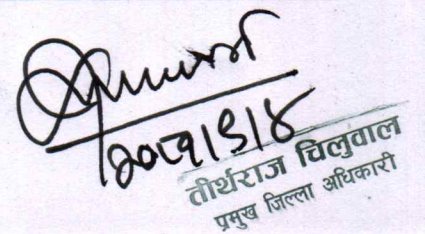 २०७९।९।४
तीर्थराज चिलुवाल
प्रमुख जिल्ला अधिकारी